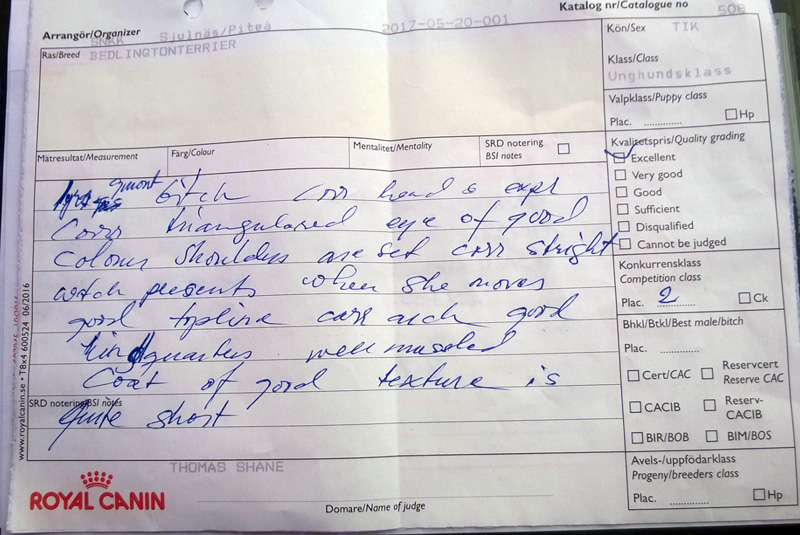 Arrangör/Organizer
SNKK Sjulnäs/Piteå 2017-05-20-001
Katalog nr/Catalogue no
508
Ras/Breed BEDLINGTONTERRIER
Kön/Sex TIK
Klass/Class
Unghundsklass
Valpklass/Puppy class
Plac. .............. Hp
Mätresultat/Measurement
Färg/Colour
Mentalitet/Mentality
SRD notering
BSI notes
Kvalitetspris/Quality grading
Excellent
Very good
Good
Sufficient
Disqualified
Cannot be judged
bitch corr head & expl
Corr triangulared eye of good
colour shoulders are set corr stright
witch presents when she moves
good topline corr arch good
hindquarters well muscled
Coat of good texture is
SRD notering/BSI notes
Quite short
Konkurrensklass
Competition class
Plac. 2 Ck
Bhkl/Btkl/Best male/bitch
Plac. ..............
Cert/CAC
Reservcert
Reserve CAC
CACIB
Reserv-
CACIB
BIR/BOB
BIM/BOS
Avels-/uppfödarklass
Progeny/breeders class
Plac. .............. Hp
THOMAS SHANE
Domare/Name of judge
ROYAL CANIN
www.royalcanin.se • TBx4 600524 06/2016